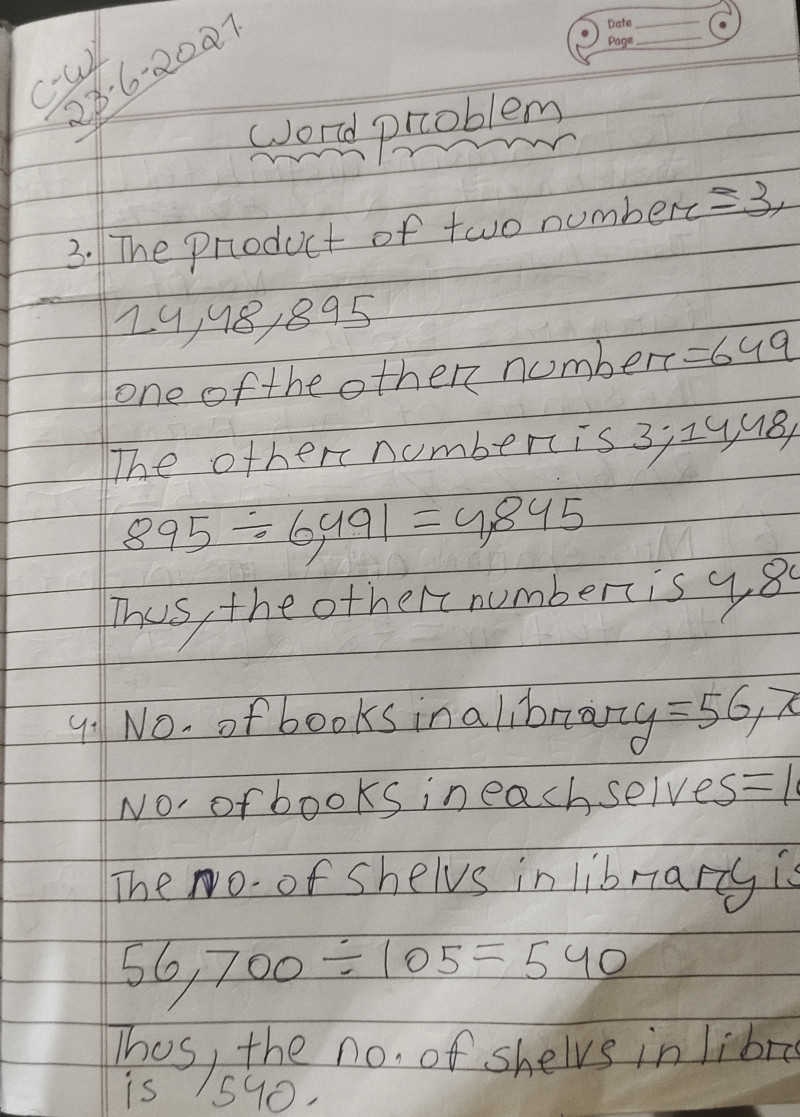 Date
Page
C-W
23-6-2021
Word problem
3. The product of two number = 3,
14,48,895
one of the other number = 649
The other number is 3,14,48,
895 ÷ 6,491 = 4,845
Thus, the other number is 4,84
4. No. of books in a library = 56,7
No. of books in each selves = 10
The No. of shelvs in library is
56,700 ÷ 105 = 540
Thus, the no. of shelvs in libra
is 540.